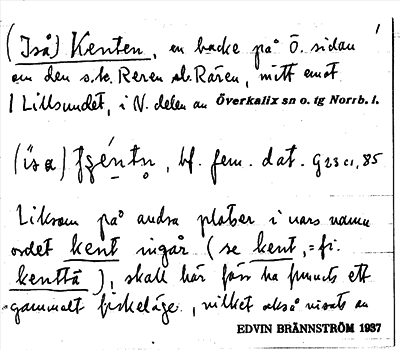 1
(Iså) Kenten, en backe på Ö. sidan
om den s.k. Reren el. Rären, mitt emot
Lillsundet, i N. delen av Överkalix sn o. tg Norrb. l.
(isa) hf. fem. dat. 85
Liksom på andra platser i vars namn
ordet kent ingår (se kent, = fi.
kenttä), skall här förr ha funnits ett
gammalt fiskeläge, vilket också visats av
EDVIN BRÄNNSTRÖM 1937